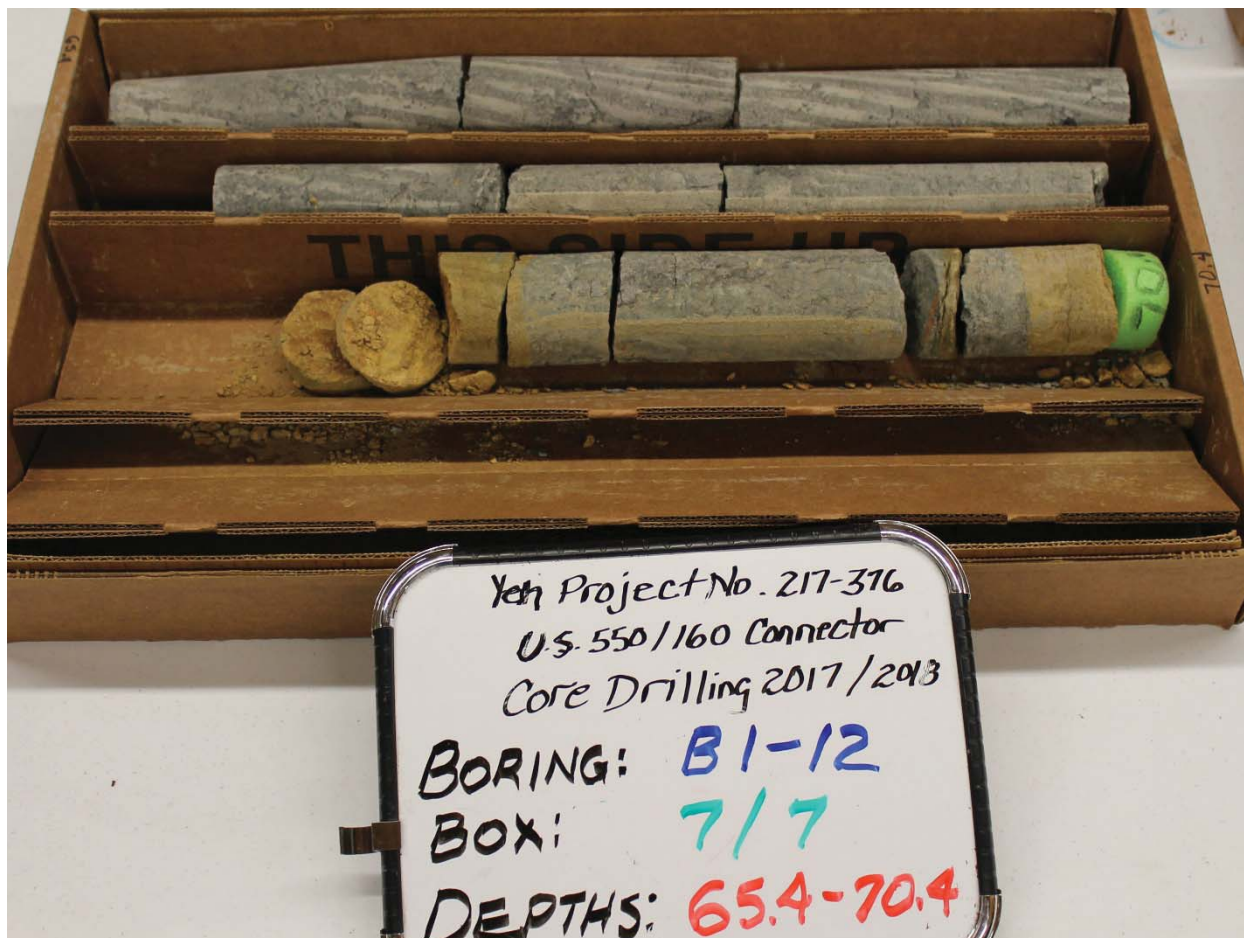 65.4
THIS SIDE UP
70.4
Yeh Project No. 217-376
U.S. 550/160 Connector
Core Drilling 2017/2018
BORING: B1-12
BOX: 7/7
DEPTHS: 65.4-70.4